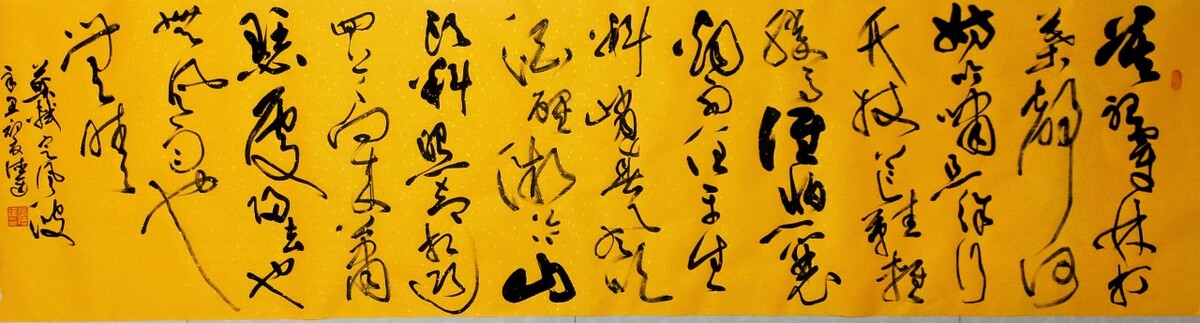 莫聽穿林打
葉聲何
妨吟嘯且徐行
竹杖芒鞋輕
勝馬誰怕一蓑
烟雨任平生
料峭春风吹
酒醒微冷山
头斜照却相迎
回首向来萧
瑟處归去也
無风雨也
无晴
苏轼定风波
辛丑初夏